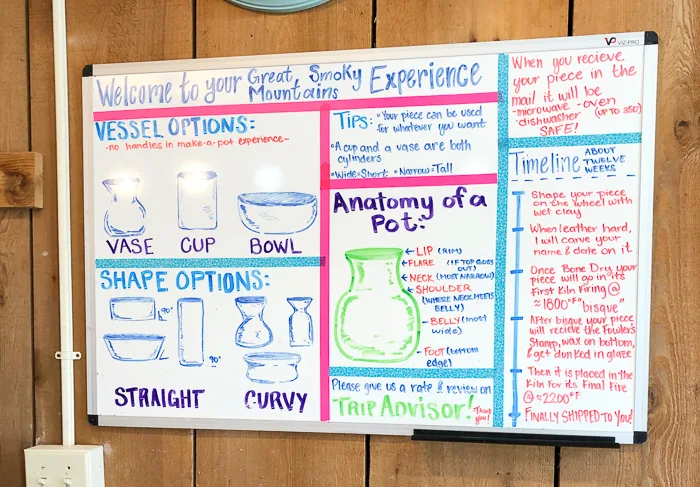 VIZ-PRO
Welcome to your Great Smoky Experience
Mountains
VESSEL OPTIONS:
-no handles in make-a-pot experience-
VASE CUP BOWL
SHAPE OPTIONS:
90°
90°
STRAIGHT CURVY
TIPS: •Your piece can be used
for whatever you want
•A cup and a vase are both
cylinders
•Wide=Short •Narrow=Tall
Anatomy of a
Pot:
LIP (RIM)
FLARE (IF TOP GOES
OUT)
NECK (MOST NARROW)
SHOULDER
(WHERE NECK MEETS
BELLY)
BELLY (most
wide)
FOOT (bottom
edge)
Please give us a rate & review on
TRIP ADVISOR!
Thank
you!
When you recieve
your piece in the
mail it will be
-microwave -oven
-dishwasher (UP TO 350)
SAFE!
Timeline ABOUT
TWELVE
WEEKS
Shape your piece
on the wheel with
wet clay
When leather hard,
I will carve your
name & date on it
Once Bone Dry your
piece will go in its
First Kiln Firing @
≈1800°F "bisque"
After bisque your piece
will recieve the Fowler's
Stamp, wax on bottom,
& get dunked in glaze
Then it is placed in the
Kiln for its Final Fire
@ ≈2200°F
FINALLY SHIPPED TO YOU!